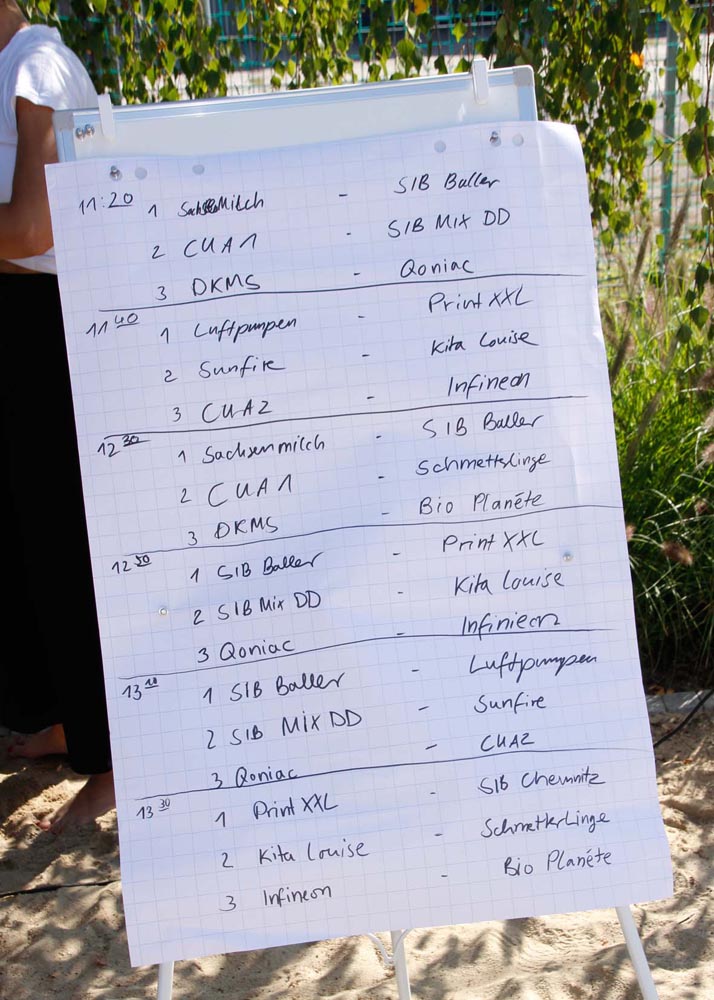 11:20 1 Sachsenmilch - SIB Baller
2 CUA1 - SIB MIX DD
3 DKMS - Qoniac
11 40 1 Luftpumpen - Print XXL
2 Sunfire - Kita Louise
3 CUA2 - Infineon
12 30 1 Sachsenmilch - SIB Baller
2 CUA1 - Schmetterlinge
3 DKMS - Bio Planéte
12 50 1 SIB Baller - Print XXL
2 SIB Mix DD - Kita Louise
3 Qoniac - Infinieon
13 10 1 SIB Baller - Luftpumpen
2 SIB MIX DD - Sunfire
3 Qoniac - CUA2
13 30 1 Print XXL - SIB Chemnitz
2 Kita Louise - Schmetterlinge
3 Infineon - Bio Planéte